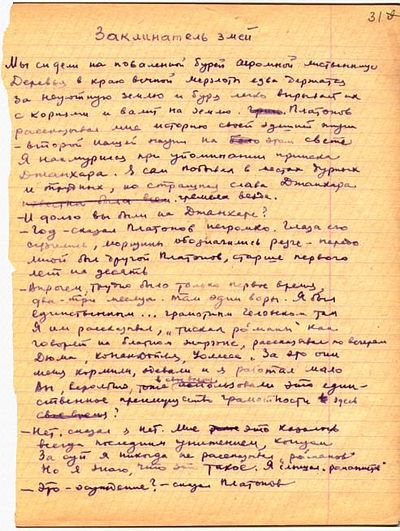 31
Заклинатель змей
Мы сидели на поваленной бурей огромной лиственнице
Деревья в краю вечной мерзлоты едва держатся
за неуютную землю и буря легко вырывает их
с корнями и валит на землю. Платонов
рассказывал мне историю своей здешней жизни
– второй нашей жизни на этом свете
Я нахмурился при упоминании прииска
Джанхара. Я сам побывал в местах дурных
и трудных, но страшная слава Джанхара
гремела везде.
– И долго вы были на Джанхаре?
– Год – сказал Платонов негромко. Глаза его
сузились, морщины обозначились резче – передо
мной был другой Платонов, старше первого
лет на десять
– Впрочем, трудно было только первое время,
два – три месяца. Там одни воры. Я был
единственным... грамотным человеком там
Я им рассказывал, „тискал романы" как
говорят на блатном жаргоне, рассказывал по вечерам
Дюма, Конан Дойля, Уоллеса. За это они
меня кормили, одевали и я работал мало
Вы, вероятно, тоже в свое время использовали это един-
ственное преимущество грамотности здесь
– Нет, сказал я нет. Мне это казалось
всегда последним унижением, концом
За суп я никогда не рассказывал „романов"
Но я знаю, что это такое. Я слышал „романистов"
– Это – осуждение? – сказал Платонов